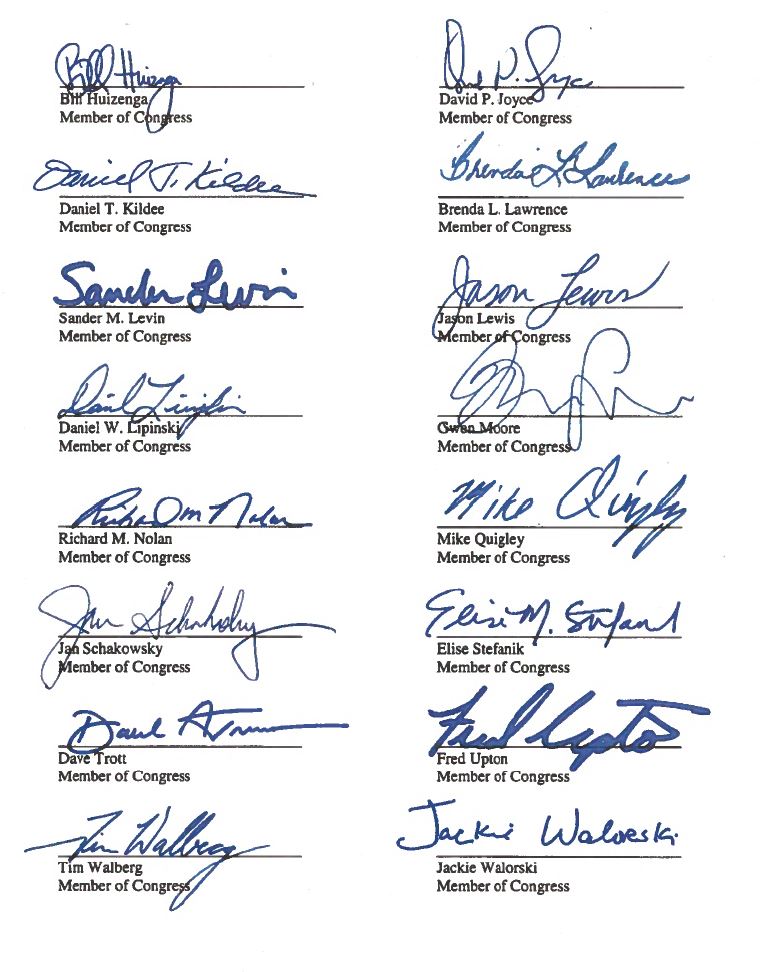 Bill Huizenga
Bill Huizenga
Member of Congress
David P. Joyce
David P. Joyce
Member of Congress
Daniel T. Kildee
Daniel T. Kildee
Member of Congress
Brenda L Lawrence
Brenda L. Lawrence
Member of Congress
Sander Levin
Sander M. Levin
Member of Congress
Jason Lewis
Jason Lewis
Member of Congress
Daniel Lipinski
Daniel W. Lipinski
Member of Congress
Gwen Moore
Member of Congress
Richard M Nolan
Richard M. Nolan
Member of Congress
Mike Quigley
Mike Quigley
Member of Congress
Jan Schakowsky
Jan Schakowsky
Member of Congress
Elise M. Stefanik
Elise Stefanik
Member of Congress
Dave Trott
Member of Congress
Fred Upton
Fred Upton
Member of Congress
Tim Walberg
Tim Walberg
Member of Congress
Jackie Walorski
Jackie Walorski
Member of Congress